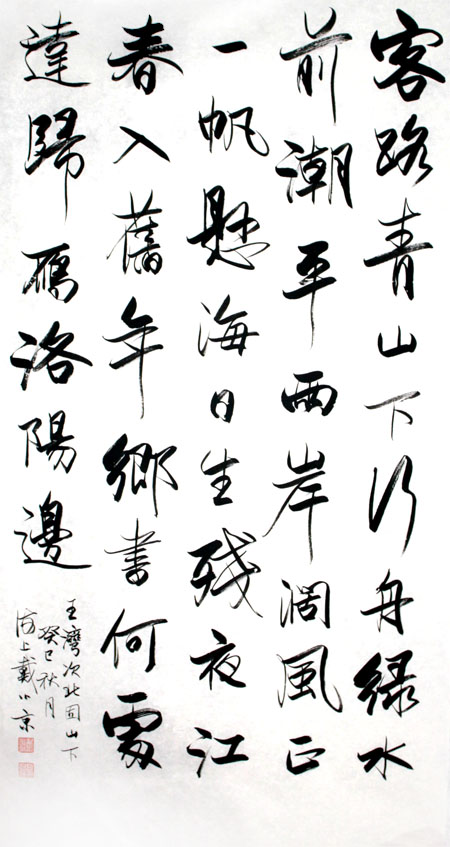 客路青山下行舟綠水
前潮平兩岸闊風正
一帆懸海日生殘夜江
春入舊年鄉書何處
達歸雁洛陽邊
王灣次北固山下
癸巳秋月
海上戴小京